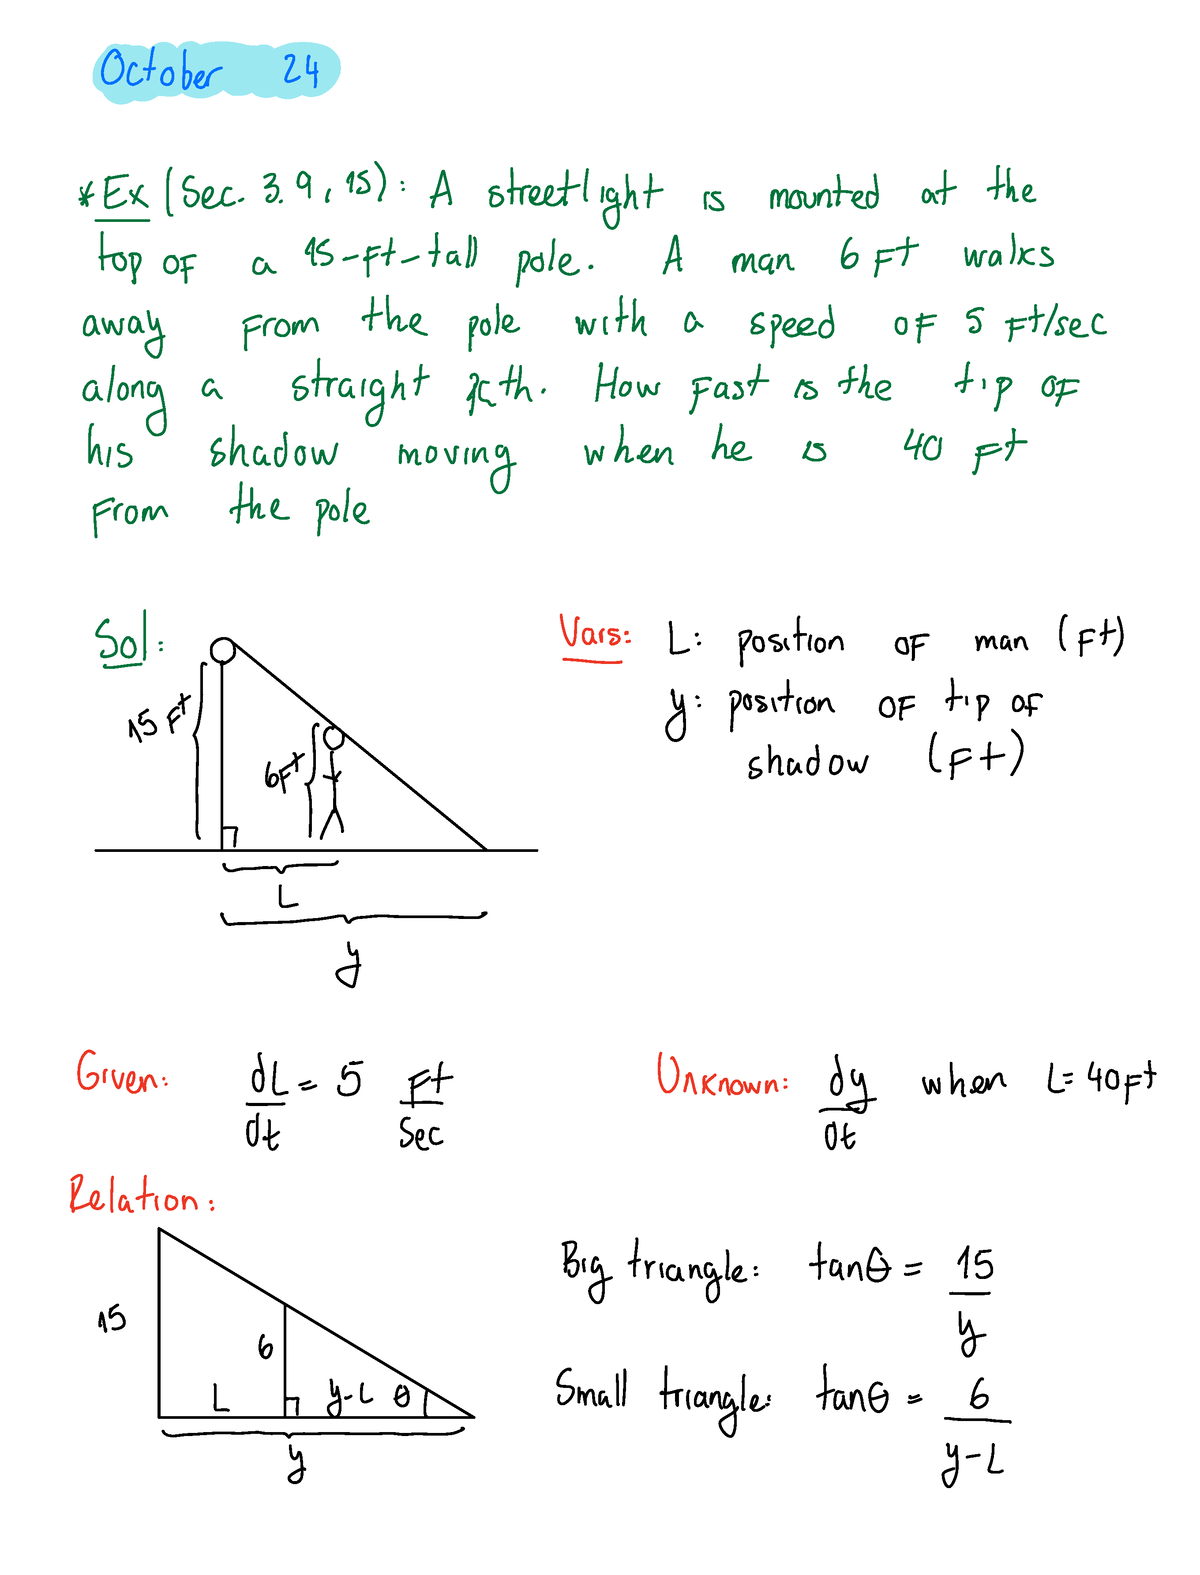 October 24
*Ex (Sec. 3.9, 15): A streetlight is mounted at the
top of a 15-ft-tall pole. A man 6 ft walks
away from the pole with a speed of 5 ft/sec
along a straight path. How fast is the tip of
his shadow moving when he is 40 ft
from the pole
Sol:
15 ft
6ft
L
y
Vars: L: position of man (ft)
y: position of tip of
shadow (ft)
Given: dL/dt = 5 ft/sec
Unknown: dy/dt when L=40ft
Relation:
15
6
L
y-L θ
y
Big triangle: tanθ = 15/y
Small triangle: tanθ = 6/y-L